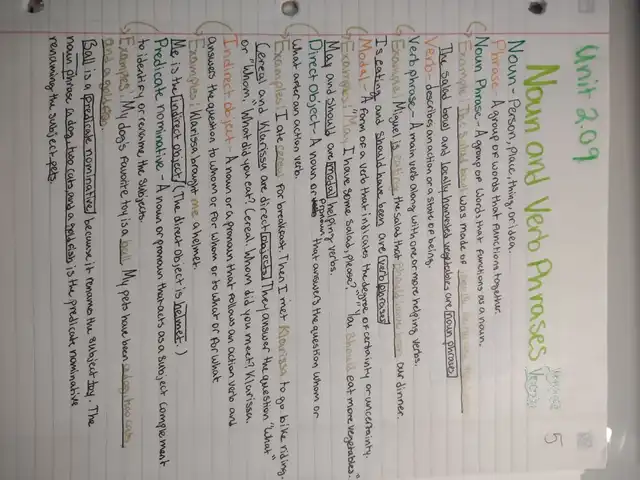 Unit 2.09
5
Noun and Verb Phrases
Noun - Person, place, thing, or idea.
Phrase - A group of words that functions together.
Noun Phrase - A group of words that functions as a noun.
Example: The salad bowl was made of
The salad bowl and locally harvested vegetables are noun phrases
Verb - describes an action or a state of being.
Verb phrase - A main verb along with one or more helping verbs.
Example: Miguel is eating the salad that should have been our dinner.
Is eating and should have been are verb phrases
Modal - A form of a verb that indicates the degree of certainty or uncertainty.
Examples: "May I have some salad, please?" "You should eat more vegetables."
May and should are modal helping verbs.
Direct Object - A noun or pronoun that answers the question whom or
what after an action verb.
Examples: I ate cereal for breakfast. Then I met Klarissa to go bike riding.
Cereal and Klarissa are direct objects. They answer the question "what"
or "whom." What did you eat? Cereal. Whom did you meet? Klarissa.
Indirect object - A noun or a pronoun that follows an action verb and
answers the question to whom or for whom or to what or for what
Examples: Klarissa brought me a helmet.
Me is the indirect object (The direct object is helmet.)
Predicate nominative - A noun or pronoun that acts as a subject complement
to identify or rename the subjects.
Examples: My dog's favorite toy is a ball. My pets have been a dog, two cats,
and a goldfish.
Ball is a predicate nominative because it renames the subject toy. The
noun phrase a dog, two cats and a goldfish is the predicate nominative
renaming the subject pets.